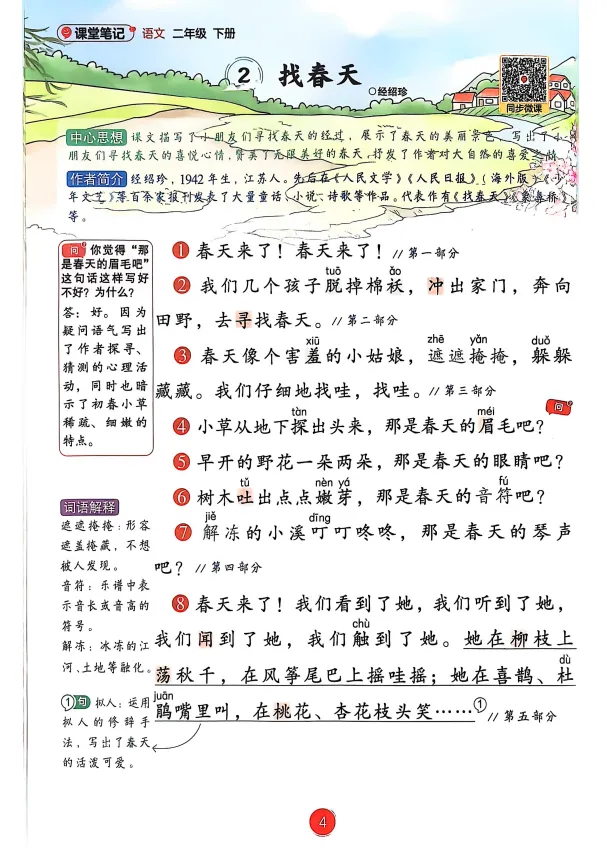 课堂笔记 语文 二年级 下册
2 找春天
○经绍珍
同步微课
中心思想 课文描写了小朋友们寻找春天的经过，展示了春天的美丽景色，写出了小
朋友们寻找春天的喜悦心情，赞美了无限美好的春天，抒发了作者对大自然的喜爱之情。
作者简介 经绍珍，1942年生，江苏人。先后在《人民文学》《人民日报》（海外版）《少
年文艺》等百余家报刊发表了大量童话、小说、诗歌等作品。代表作有《找春天》
等。
问 你觉得“那
是春天的眉毛吧”
这句话这样写好
不好？为什么？
答：好。因为
疑问语气写出
了作者探寻、
猜测的心理活
动，同时也暗
示了初春小草
稀疏、细嫩的
特点。
词语解释
遮遮掩掩：形容
遮盖掩藏，不想
被人发现。
音符：乐谱中表
示音长或音高的
符号。
解冻：冰冻的江
河、土地等融化。
①句 拟人：运用
拟人的修辞手
法，写出了春天
的活泼可爱。
1 春天来了！春天来了！ // 第一部分
tuō ǎo
2 我们几个孩子脱掉棉袄，冲出家门，奔向
田野，去寻找春天。 // 第二部分
xiū zhē yǎn duǒ
3 春天像个害羞的小姑娘，遮遮掩掩，躲躲
藏藏。我们仔细地找哇，找哇。 // 第三部分
tàn méi
问
4 小草从地下探出头来，那是春天的眉毛吧？
5 早开的野花一朵两朵，那是春天的眼睛吧？
tǔ nèn yá fú
6 树木吐出点点嫩芽，那是春天的音符吧？
jiě dīng
7 解冻的小溪叮叮咚咚，那是春天的琴声
吧？ // 第四部分
8 春天来了！我们看到了她，我们听到了她，
chù
我们闻到了她，我们触到了她。她在柳枝上
dù
荡秋千，在风筝尾巴上摇哇摇；她在喜鹊、杜
juān
鹃嘴里叫，在桃花、杏花枝头笑……① // 第五部分
4